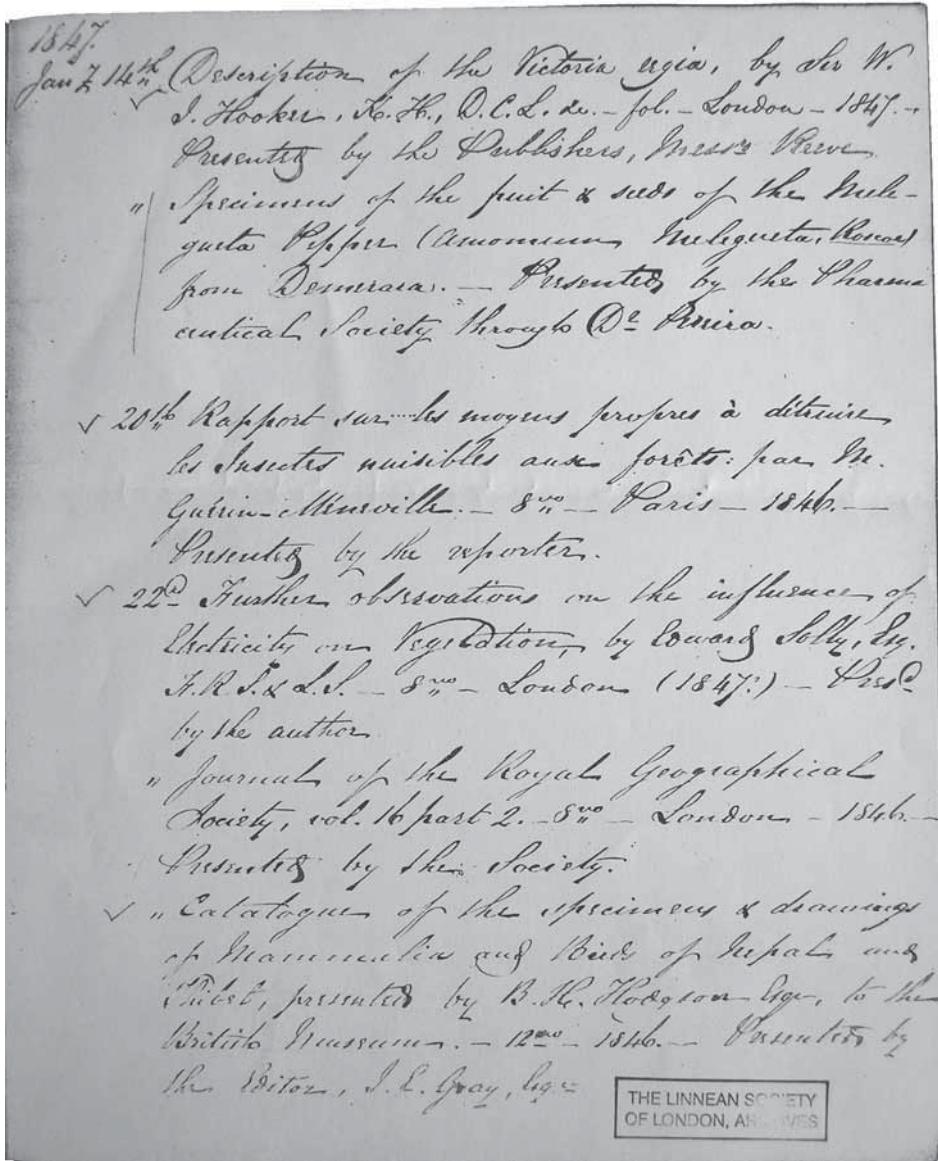 1847.
Jany 14th Description of the Victoria regia, by Sir W.
J. Hooker, K.H., D.C.L. &c. – fol. – London – 1847. –
Presented by the Publishers, Messrs Reeve
" Specimens of the fruit & seeds of the Mele-
gueta Pepper (Amomum Melegueta, Roscoe)
from Demerara. — Presented by the Pharma
ceutical Society through Dr Pereira.
20th Rapport sur les moyens propres à détruire
les Insectes nuisibles aux forêts: par M.
Guérin-Méneville. – 8vo – Paris – 1846. —
Presented by the reporter.
22d Further observations on the influence of
Electricity on Vegetation, by Edward Solly, Esq.
F.R.S. & L.S. – 8vo – London (1847.) – Presd
by the author
" Journal of the Royal Geographical
Society, vol. 16 part 2. – 8vo – London – 1846. –
Presented by the Society.
" Catalogue of the specimens & drawings
of Mammalia and Birds of Nepal and
Thibet, presented by B.H. Hodgson Esqr, to the
British Museum. – 12mo – 1846. – Presented by
the Editor, J.E. Gray, Esqre
THE LINNEAN SOCIETY
OF LONDON, ARCHIVES